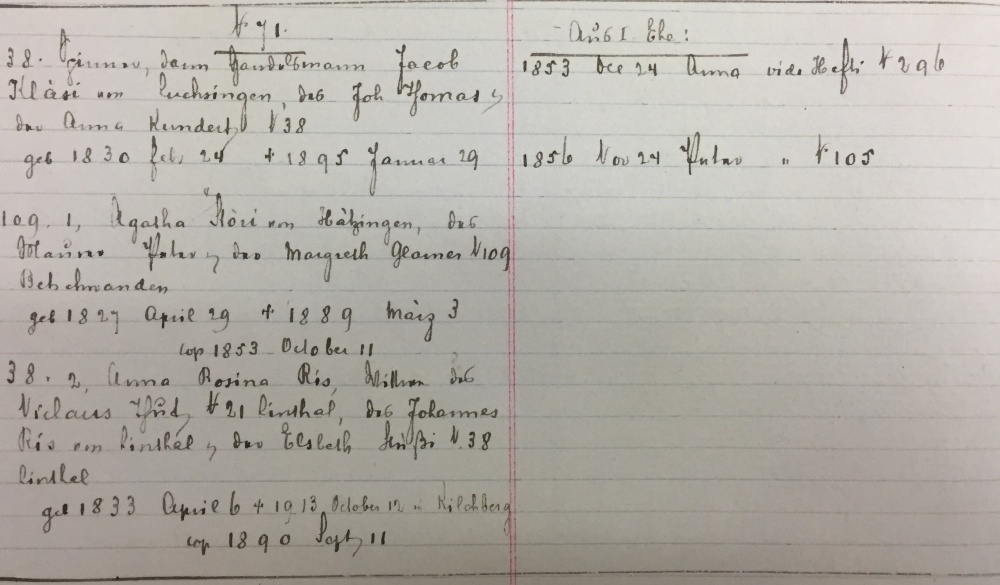 N 71.
38. Spinner, dann Handelsmann Jacob
Kläsi von Luchsingen, des Joh Thomas &
der Anna Kundert, N 38
geb 1830 Feb, 24 + 1895 Januar 29
109. 1, Agatha Störi von Hätzingen, des
Maurer Peter & der Margreth Glarner N 109
Betschwanden
geb 1827 April 29 + 1889 März 3
cop 1853 October 11
38. 2, Anna Rosina Ris, Wittwe des
Niclaus Thut, N 21 Linthal, des Johannes
Ris von Linthal & der Elsbeth Stüßi N. 38
Linthal
geb 1833 April 6 + 1913 October 12 in Kilchberg
cop 1890 Sept, 11
Aus I Ehe:
1853 Dec 24 Anna vide Hefti N 296
1856 Nov 24 Peter " N 105